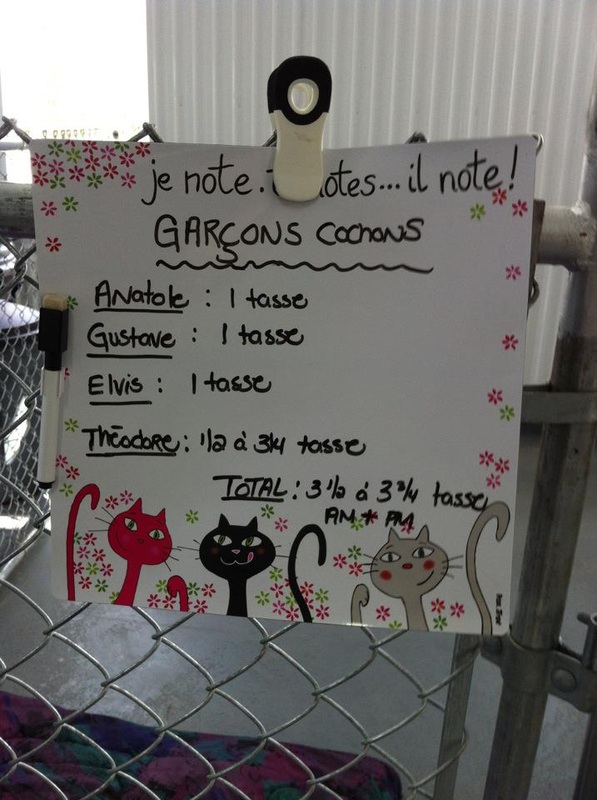 je note. notes... il note!
GARÇONS cochons
Anatole : 1 tasse
Gustave : 1 tasse
Elvis : 1 tasse
Théodore : 1/2 à 3/4 tasse
TOTAL : 3 1/2 à 3 3/4 tasse
AM + PM